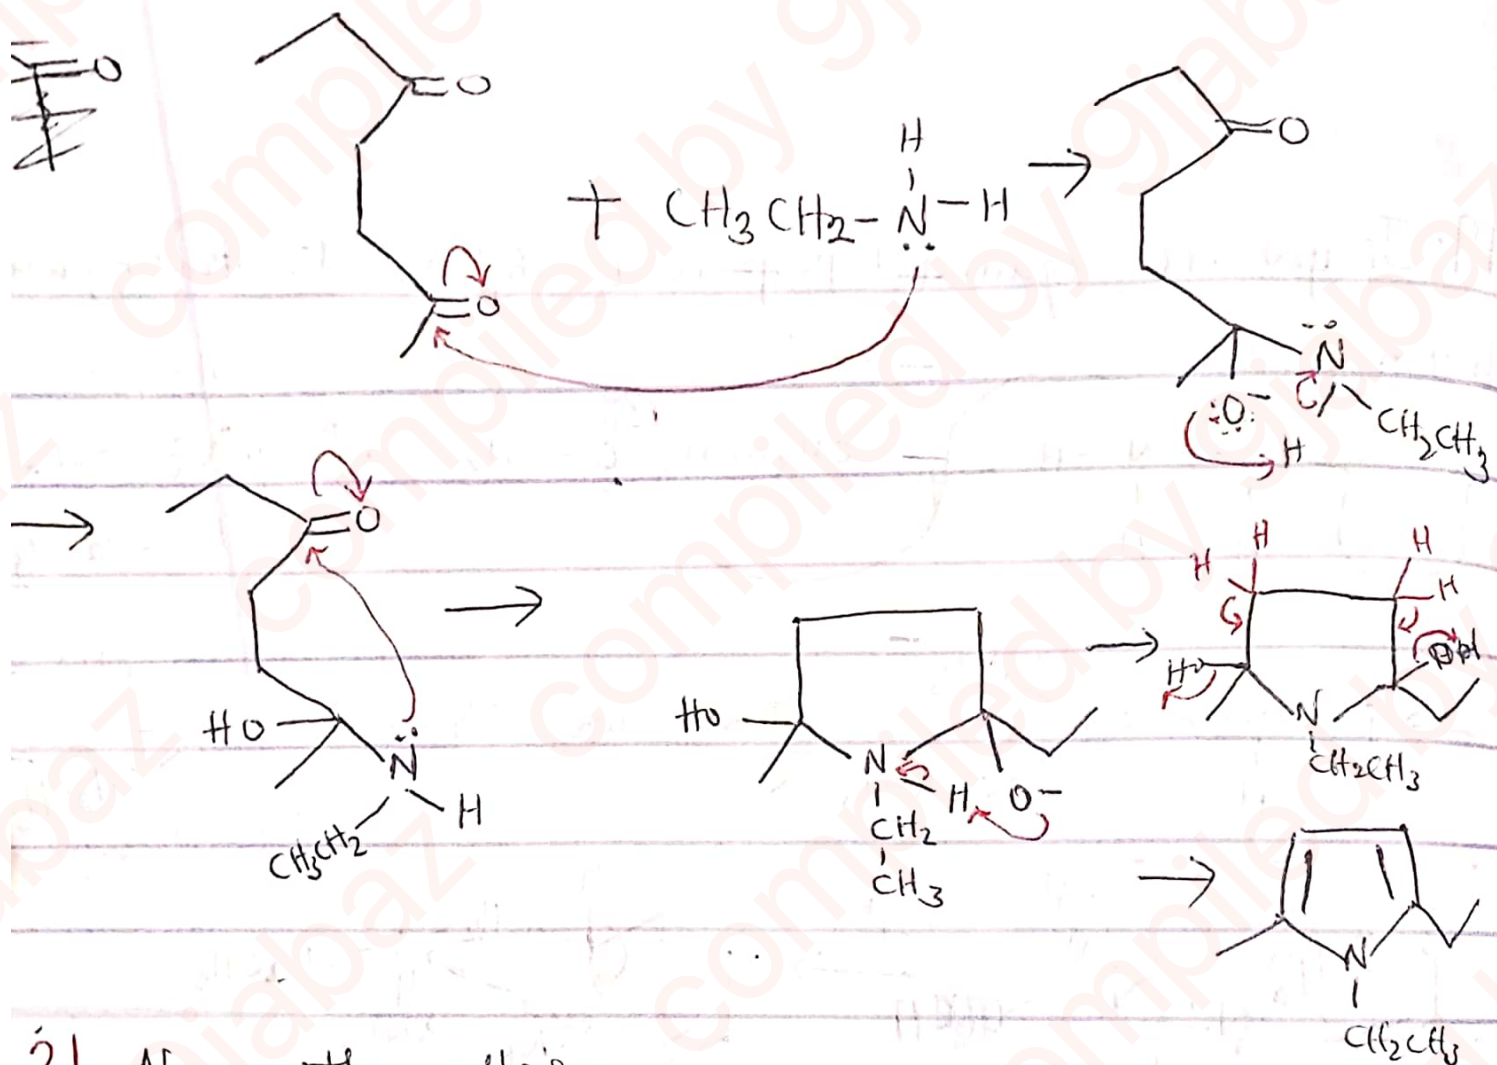 O
O
H
+ CH3CH2-N-H
O
O
N
O-
H
CH2CH3
O
HO
N
H
CH3CH2
HO
N
H O-
CH2
CH3
H H H H
HO OH
N
CH2CH3
N
CH2CH3
21
compiled by gjabaz